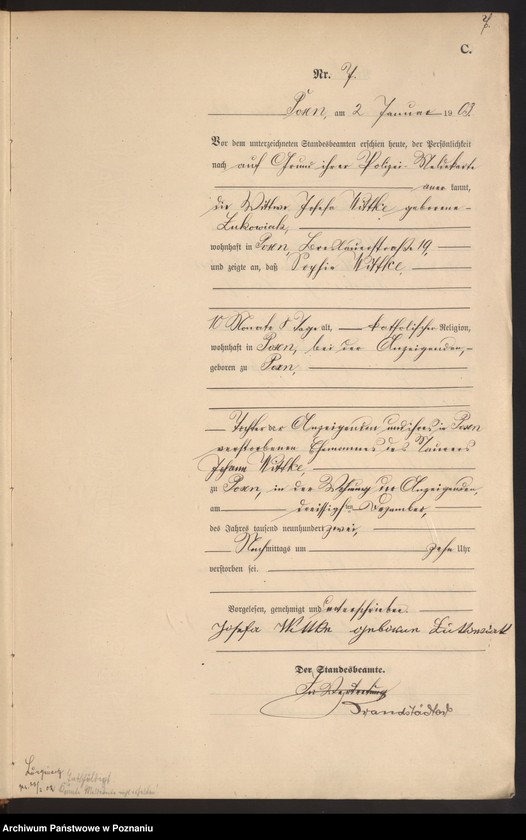 7
C.
Nr. 7
Posen, am 2 Januar 1903
Vor dem unterzeichneten Standesbeamten erschien heute, der Persönlichkeit
nach auf Grund ihrer Polizei Meldekarte
aner kannt,
die Wittwe Josefa Wittke geborene
Lukowiak,
wohnhaft in Posen, Breslauerstraße 19,
und zeigte an, daß Sophie Wittke,
10 Monate 8 Tage alt, katholischer Religion,
wohnhaft in Posen, bei der Anzeigenden,
geboren zu Posen,
Tochter der Anzeigenden und ihres in Posen
verstorbenen Ehemannes des Maurers
Johann Wittke,
zu Posen, in der Wohnung der Anzeigenden,
am dreissigsten Dezember,
des Jahres tausend neunhundert zwei,
Nachmittags um zehn Uhr
verstorben sei.
Vorgelesen, genehmigt und unterschrieben
Josefa Wittke geborene
Der Standesbeamte.
In Vertretung
Brandstädter
Archiwum Państwowe w Poznaniu